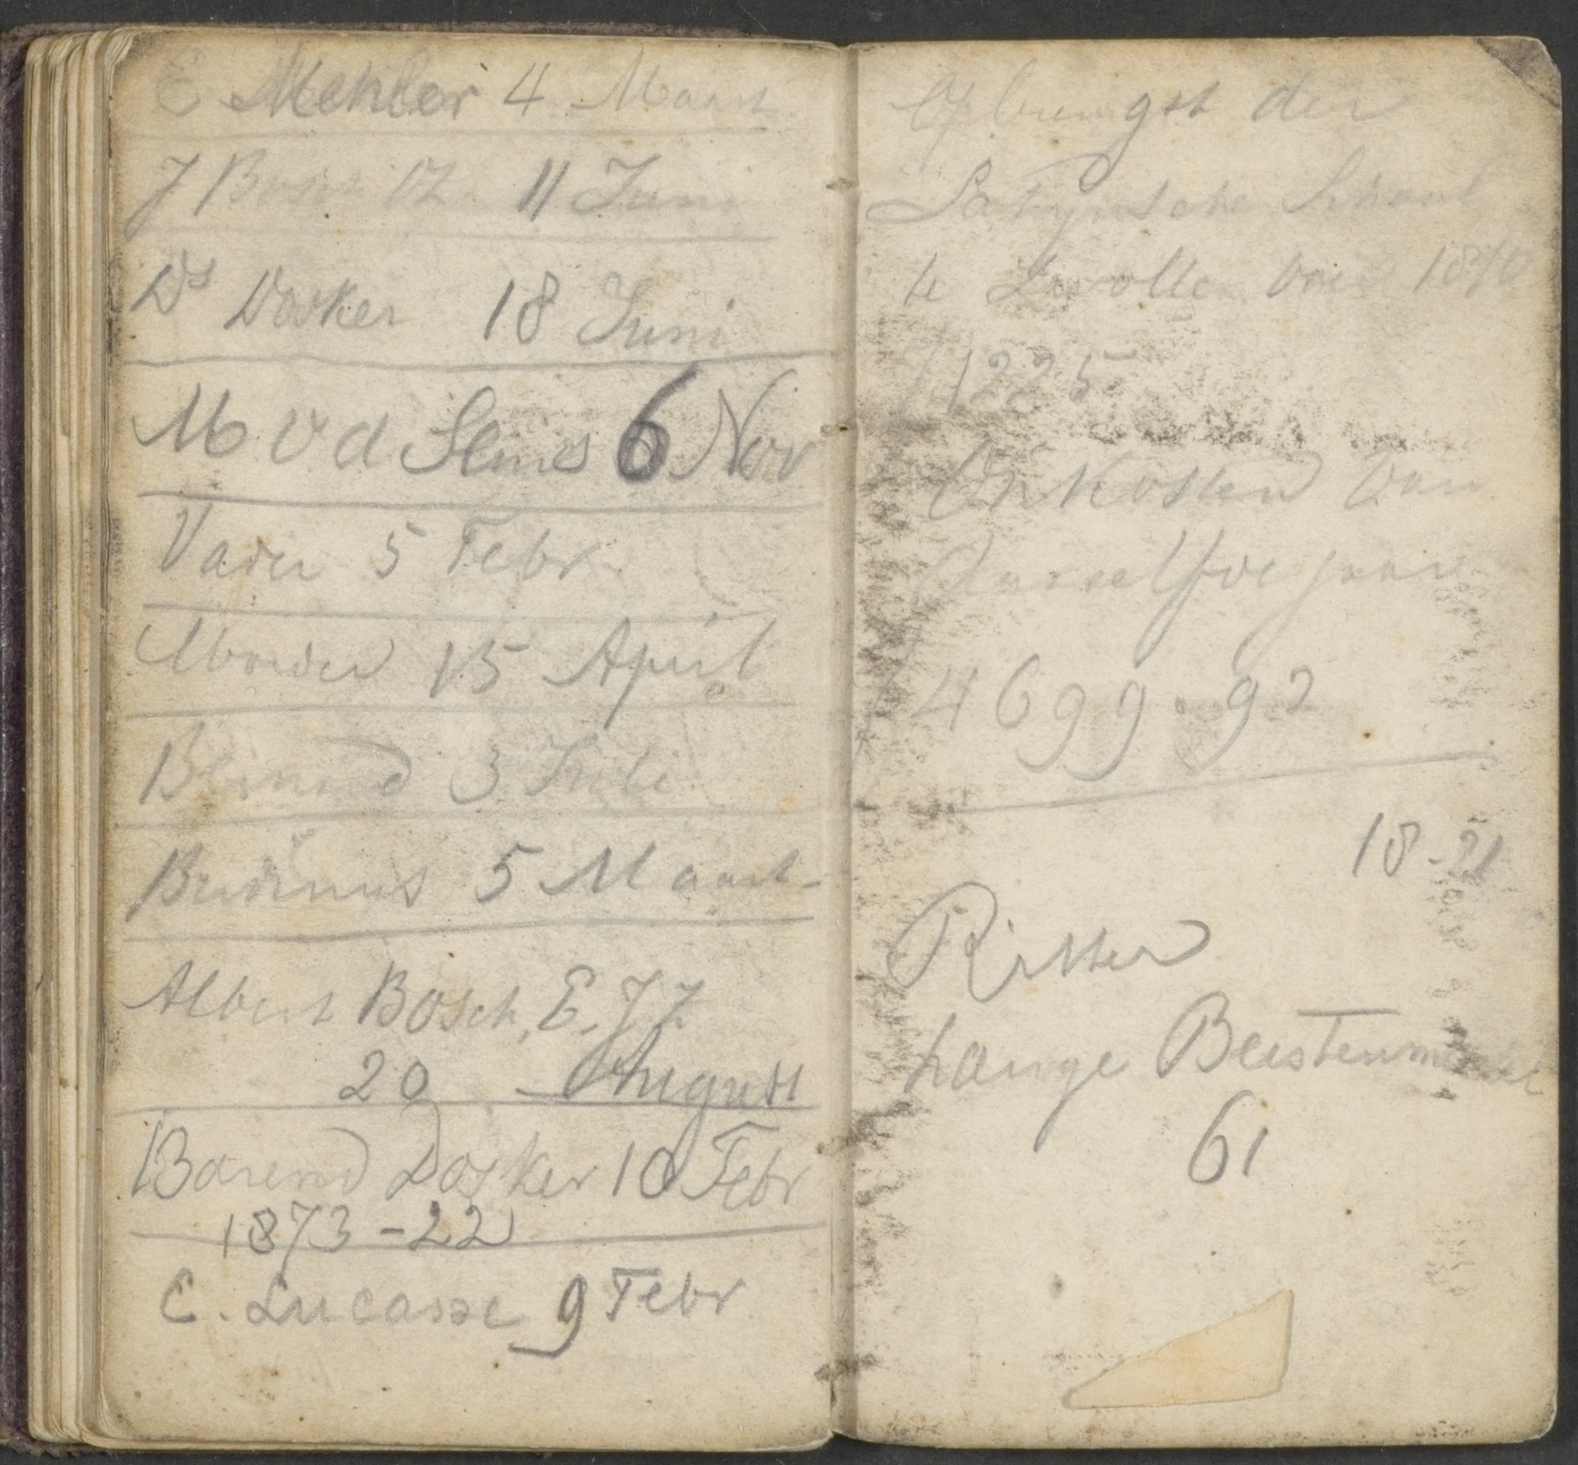 E Mehler 4 Maart
J Bosch 11 Juni
Ds Dosker 18 Juni
M v d Sluis 6 Nov
Vader 5 Febr
Moeder 15 April
Berend 3 Juli
5 Maart
Albert Bosch, E.J.Z.
20 August
Barend Dosker 10 Febr
1873-22
E. Lucasse 9 Febr
Opbrengst der
Latynsche School
te Zwolle voor 1870
1225
Onkosten van
datzelfde jaar
4699.92
18-21
Ritter
Lange Beestenmarkt
61